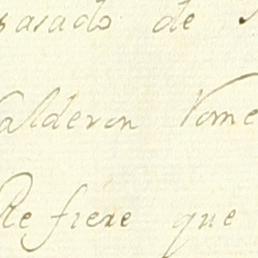 pasado de
Calderon Tome
Refiere que